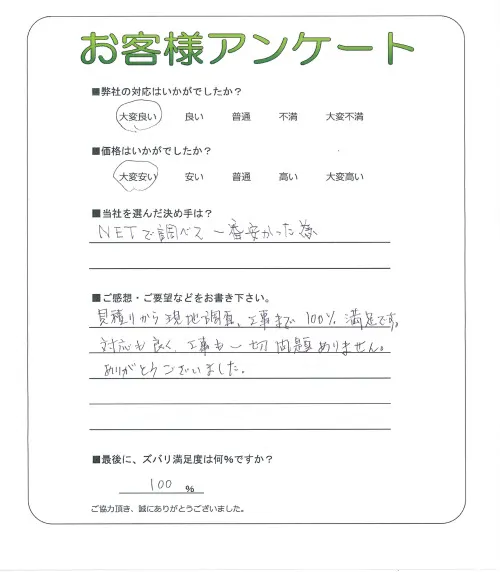 お客様アンケート
■弊社の対応はいかがでしたか？
大変良い 良い 普通 不満 大変不満
■価格はいかがでしたか？
大変安い 安い 普通 高い 大変高い
■当社を選んだ決め手は？
NETで調べて一番安かった為
■ご感想・ご要望などをお書き下さい。
見積りから現地調査、工事まで100%満足です。
対応も良く、工事も一切問題ありません。
ありがとうございました。
■最後に、ズバリ満足度は何％ですか？
100 %
ご協力頂き、誠にありがとうございました。